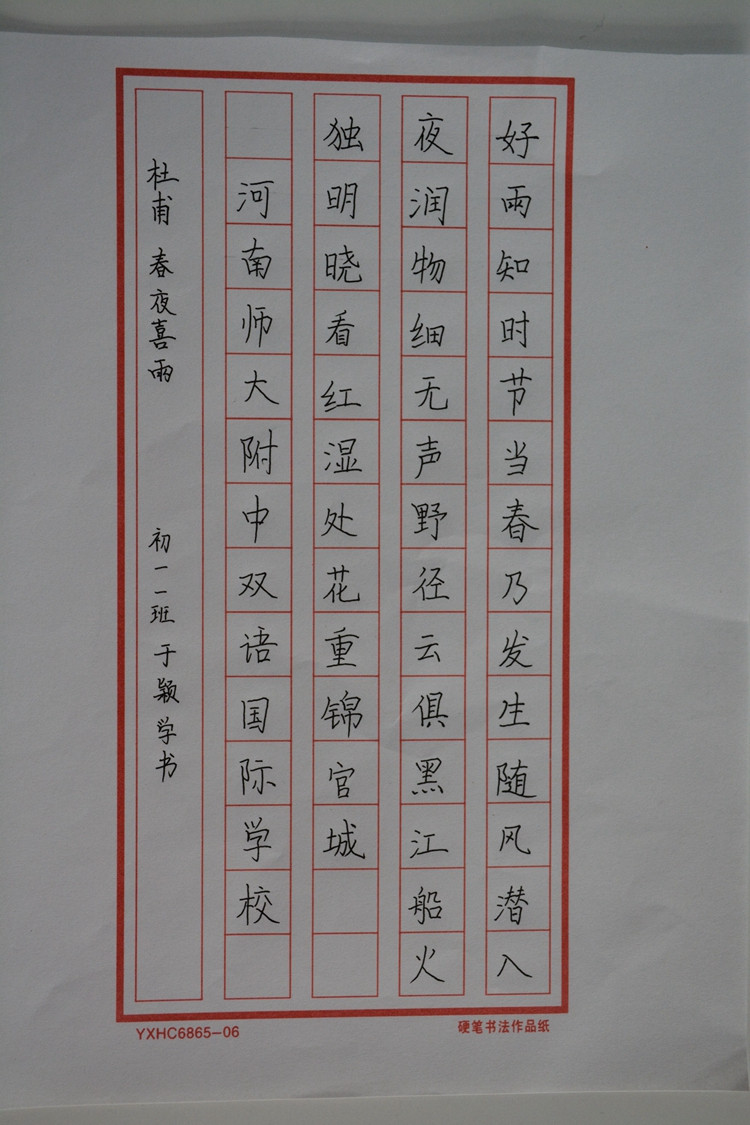 好雨知时节当春乃发生随风潜入
夜润物细无声野径云俱黑江船火
独明晓看红湿处花重锦官城
河南师大附中双语国际学校
杜甫 春夜喜雨 初一一班 于颖学书
YXHC6865-06
硬笔书法作品纸